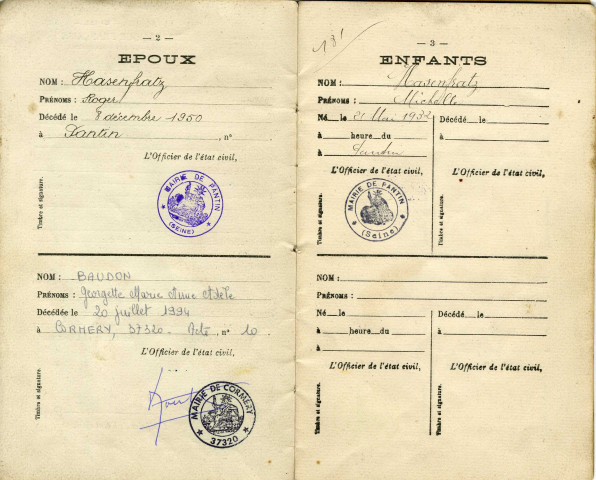 — 2 —
EPOUX
NOM : Hasenfratz
PRÉNOMS : Roger
Décédé le 8 décembre 1950
à Pantin, n°
L'Officier de l'état civil,
Timbre et signature.
MAIRIE DE PANTIN
(SEINE)
NOM : BAUDON
PRÉNOMS : Georgette Marie Anne Adèle
Décédée le 20 juillet 1994
à CORMERY, 37320. Acte, n° 10
L'Officier de l'état civil,
Timbre et signature.
MAIRIE DE CORMERY
37320
181
— 3 —
ENFANTS
NOM : Hasenfratz
PRÉNOMS : Michelle
Né le 21 Mai 1932
Décédé le
à heure du
à Pantin
à
L'Officier de l'état civil,
L'Officier de l'état civil,
Timbre et signature.
MAIRIE DE PANTIN
(Seine)
NOM :
PRÉNOMS :
Né le
Décédé le
à heure du
à
à
L'Officier de l'état civil,
L'Officier de l'état civil,
Timbre et signature.